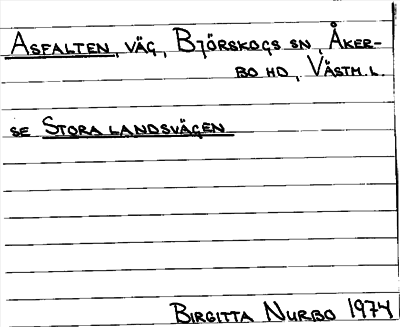 ASFALTEN, VÄG, BJÖRSKOGS SN, ÅKER-
BO HD, VÄSTM. L.
SE STORA LANDSVÄGEN
BIRGITTA NURBO 1974